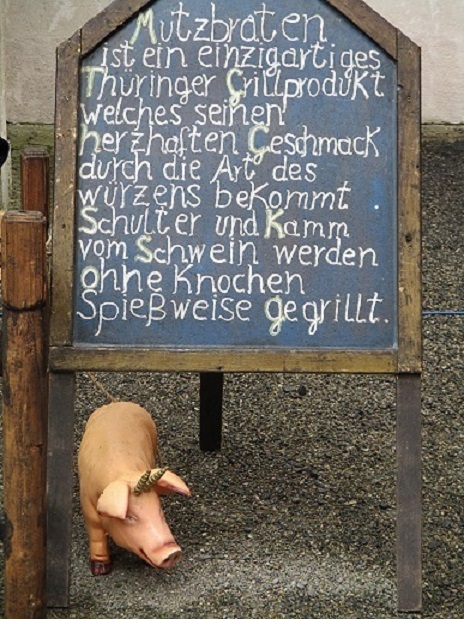 Mutzbraten
ist ein einzigartiges
Thüringer Grillprodukt
welches seinen
herzhaften Geschmack
durch die Art des
würzens bekommt .
Schulter und Kamm
vom Schwein werden
ohne Knochen
Spießweise gegrillt.